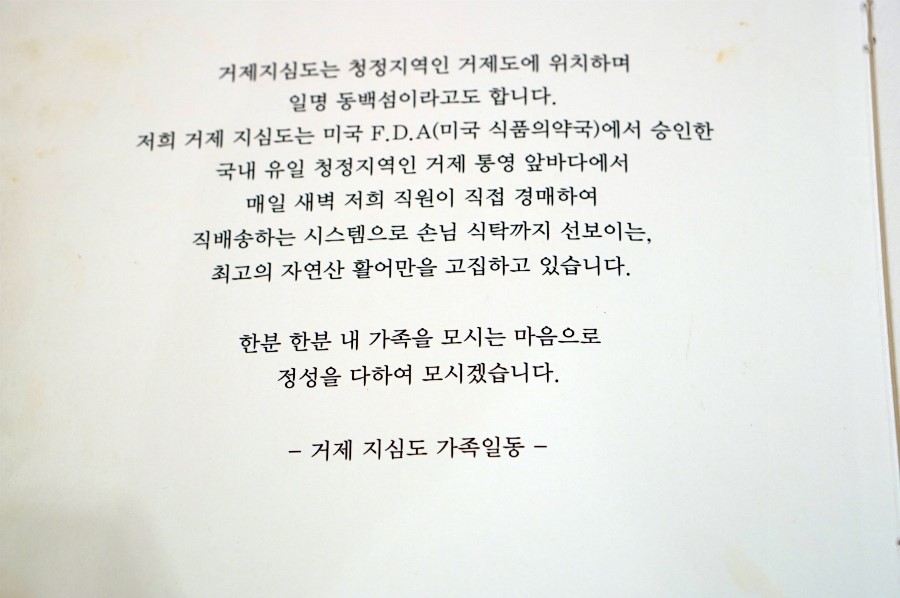 거제지심도는 청정지역인 거제도에 위치하며
일명 동백섬이라고도 합니다.
저희 거제 지심도는 미국 F.D.A(미국 식품의약국)에서 승인한
국내 유일 청정지역인 거제 통영 앞바다에서
매일 새벽 저희 직원이 직접 경매하여
직배송하는 시스템으로 손님 식탁까지 선보이는,
최고의 자연산 활어만을 고집하고 있습니다.
한분 한분 내 가족을 모시는 마음으로
정성을 다하여 모시겠습니다.
– 거제 지심도 가족일동 –